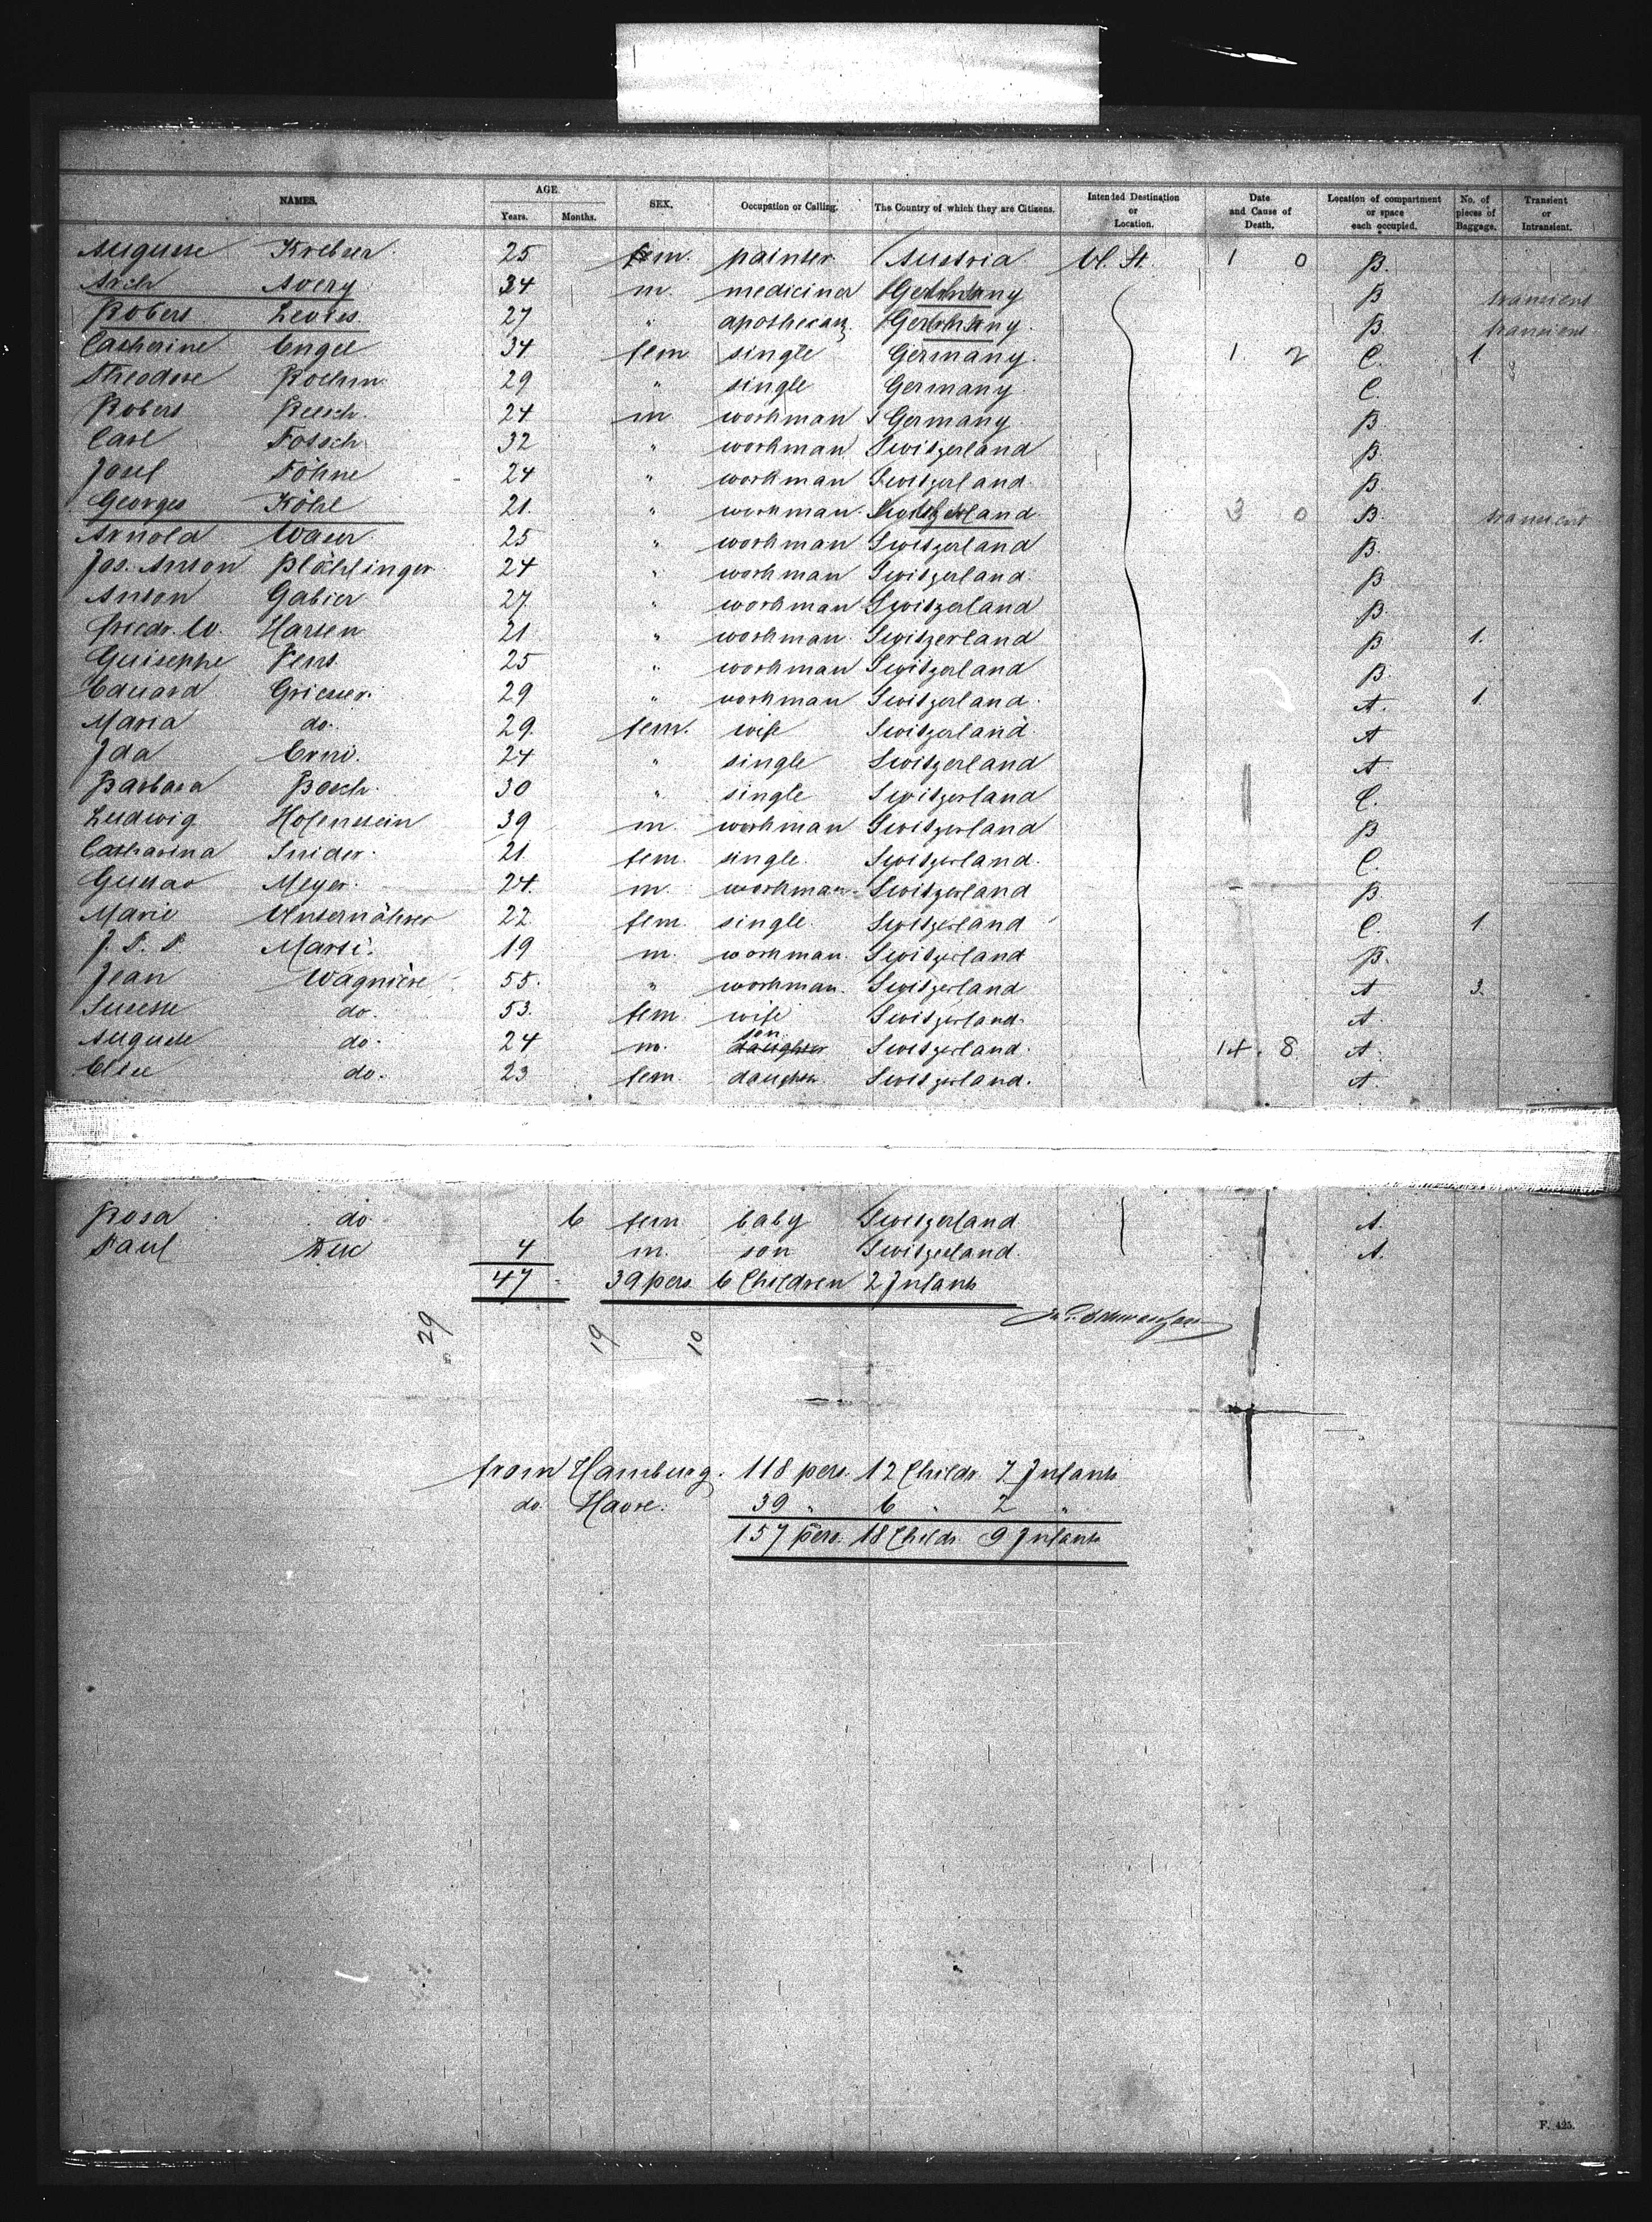 NAMES. AGE. Years. Months. SEX. Occupation or Calling. The Country of which they are Citizens. Intended Destination or Location. Date and Cause of Death. Location of compartment or space each occupied. No. of pieces of Baggage. Transient or Intransient.
Auguste 25 fem. painter Austria U. St. 1 0 B.
Arch Avery 34 m. Germany B transient
Robert 27 " Germany. B. transient
Catherine Engel 34 fem single Germany. 1 2 C. 1
Theodore Boehm 29 " single Germany C.
Robert Reesch. 24 m workman Germany B.
Carl 32 " workman Switzerland B.
Josef Föhne 24 " workman Switzerland B
Georges Köhl 21 " workman. Switzerland 3 0 B. transient
Arnold 25 " workman Switzerland B.
Jos. Anton Blöchlinger 24 " workman Switzerland. B
Anton Gabier 27. " workman Switzerland B.
Friedr. W. Harten 21 " workman. Switzerland B 1.
Guiseppe 25 " workman Switzerland B.
Eduard Grieser. 29 " workman Switzerland. A. 1.
Maria do. 29. fem. wife Switzerland A
Ida Erni. 24 " single Switzerland A.
Barbara Bosch. 30 " single Switzerland C.
Ludwig Hofenstein 39 m. workman Switzerland B
Catharina Snider. 21. fem. single. Switzerland. C.
Gustav Meyer. 24. m. workman Switzerland B
Marie Unternährer 22 fem. single. Switzerland C. 1
J. P. P. Marti. 19 m. workman. Switzerland B.
Jean Wagnière 55. " workman. Switzerland A 3.
do. 53. fem. wife Switzerland. A.
Auguste do. 24 m. son daughter Switzerland. 14. 8 A.
Elise do. 23 fem. daughter Switzerland. A.
Rosa do 6 fem baby Switzerland A.
Paul Duc 4 m. son Switzerland. A.
47 39 pers. 6 Children 2 Infants
29 19 10
from Hamburg. 118 pers. 12 Childr. 7 Infants
do. Havre. 39 " 6 " 2 "
157 pers. 18 Childr. 9 Infants
F. 425.